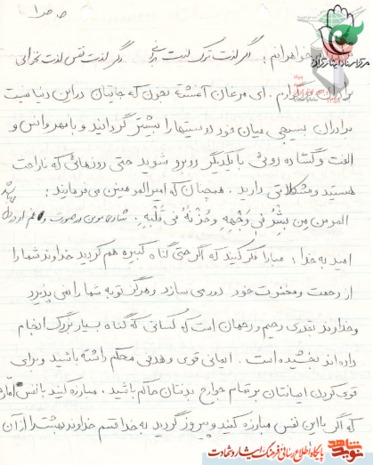 ص ۱
خواهرانم : اگر لذت ترک لذت بدانی دگر لذت نفس لذت نخوانی
ای مرغان آغشته بخون که جایتان در این دنیا نیست
برادران بسیجی میان خود دوستیها را بیشتر گردانید و با مهر و انس و
الفت و گشاده روئی با یکدیگر روبرو شوید حتی روزهائی که ناراحت
هستید و مشکلاتی دارید . همچنان که امیرالمومنین می‌فرمایند :
المومن من بشره فی وجهه و حزنه فی قلبه . شادی مومن در صورت و غم او در دل
امید به خدا : مبادا فکر کنید که اگر حتی گناه کبیره هم کردید خداوند شما را
از رحمت و مغفرت خود دور می سازد و هرگز توبه شما را نمی پذیرد
و خداوند بقدری رحیم و رحمان است که کسانی که گناه بسیار بزرگ انجام
داده اند بخشیده است . ایمانی قوی و هدفی محکم داشته باشید و برای
قوی کردن ایمانتان بر تمام جوارح بدنتان حاکم باشید . مبارزه کنید با نفس اماره
که اگر با این نفس مبارزه کنید و پیروز گردید به خدا قسم خداوند بهشت را از آن
نوید شاهد
پایگاه اطلاع رسانی فرهنگ ایثار و شهادت